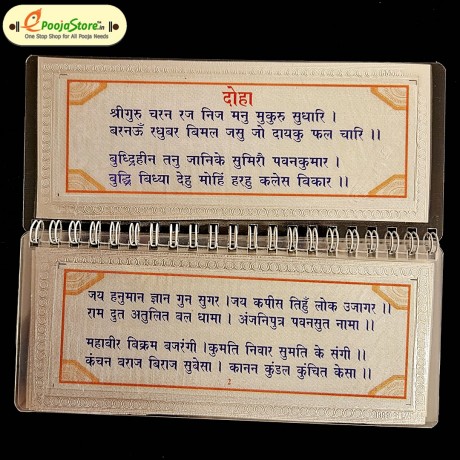 ePoojaStore.in
One Stop Shop for All Pooja Needs
दोहा
श्रीगुरु चरन रज निज मनु मुकुरु सुधारि ।
बरनऊँ रघुबर बिमल जसु जो दायकु फल चारि ।।
बुध्दिहीन तनु जानिके सुमिरौ पवनकुमार ।
बुद्धि बिध्या देहु मोहिं हरहु कलेस विकार ।।
1
जय हनुमान ज्ञान गुन सुगर ।जय कपीस तिहुँ लोक उजागर ।।
राम दुत अतुलित बल धामा । अंजनिपुत्र पवनसुत नामा ।।
महाबीर विक्रम बजरंगी ।कुमति निवार सुमति के संगी ।।
कंचन वराज बिराज सुवेसा । कानन कुंडल कुंचित केसा ।।
2